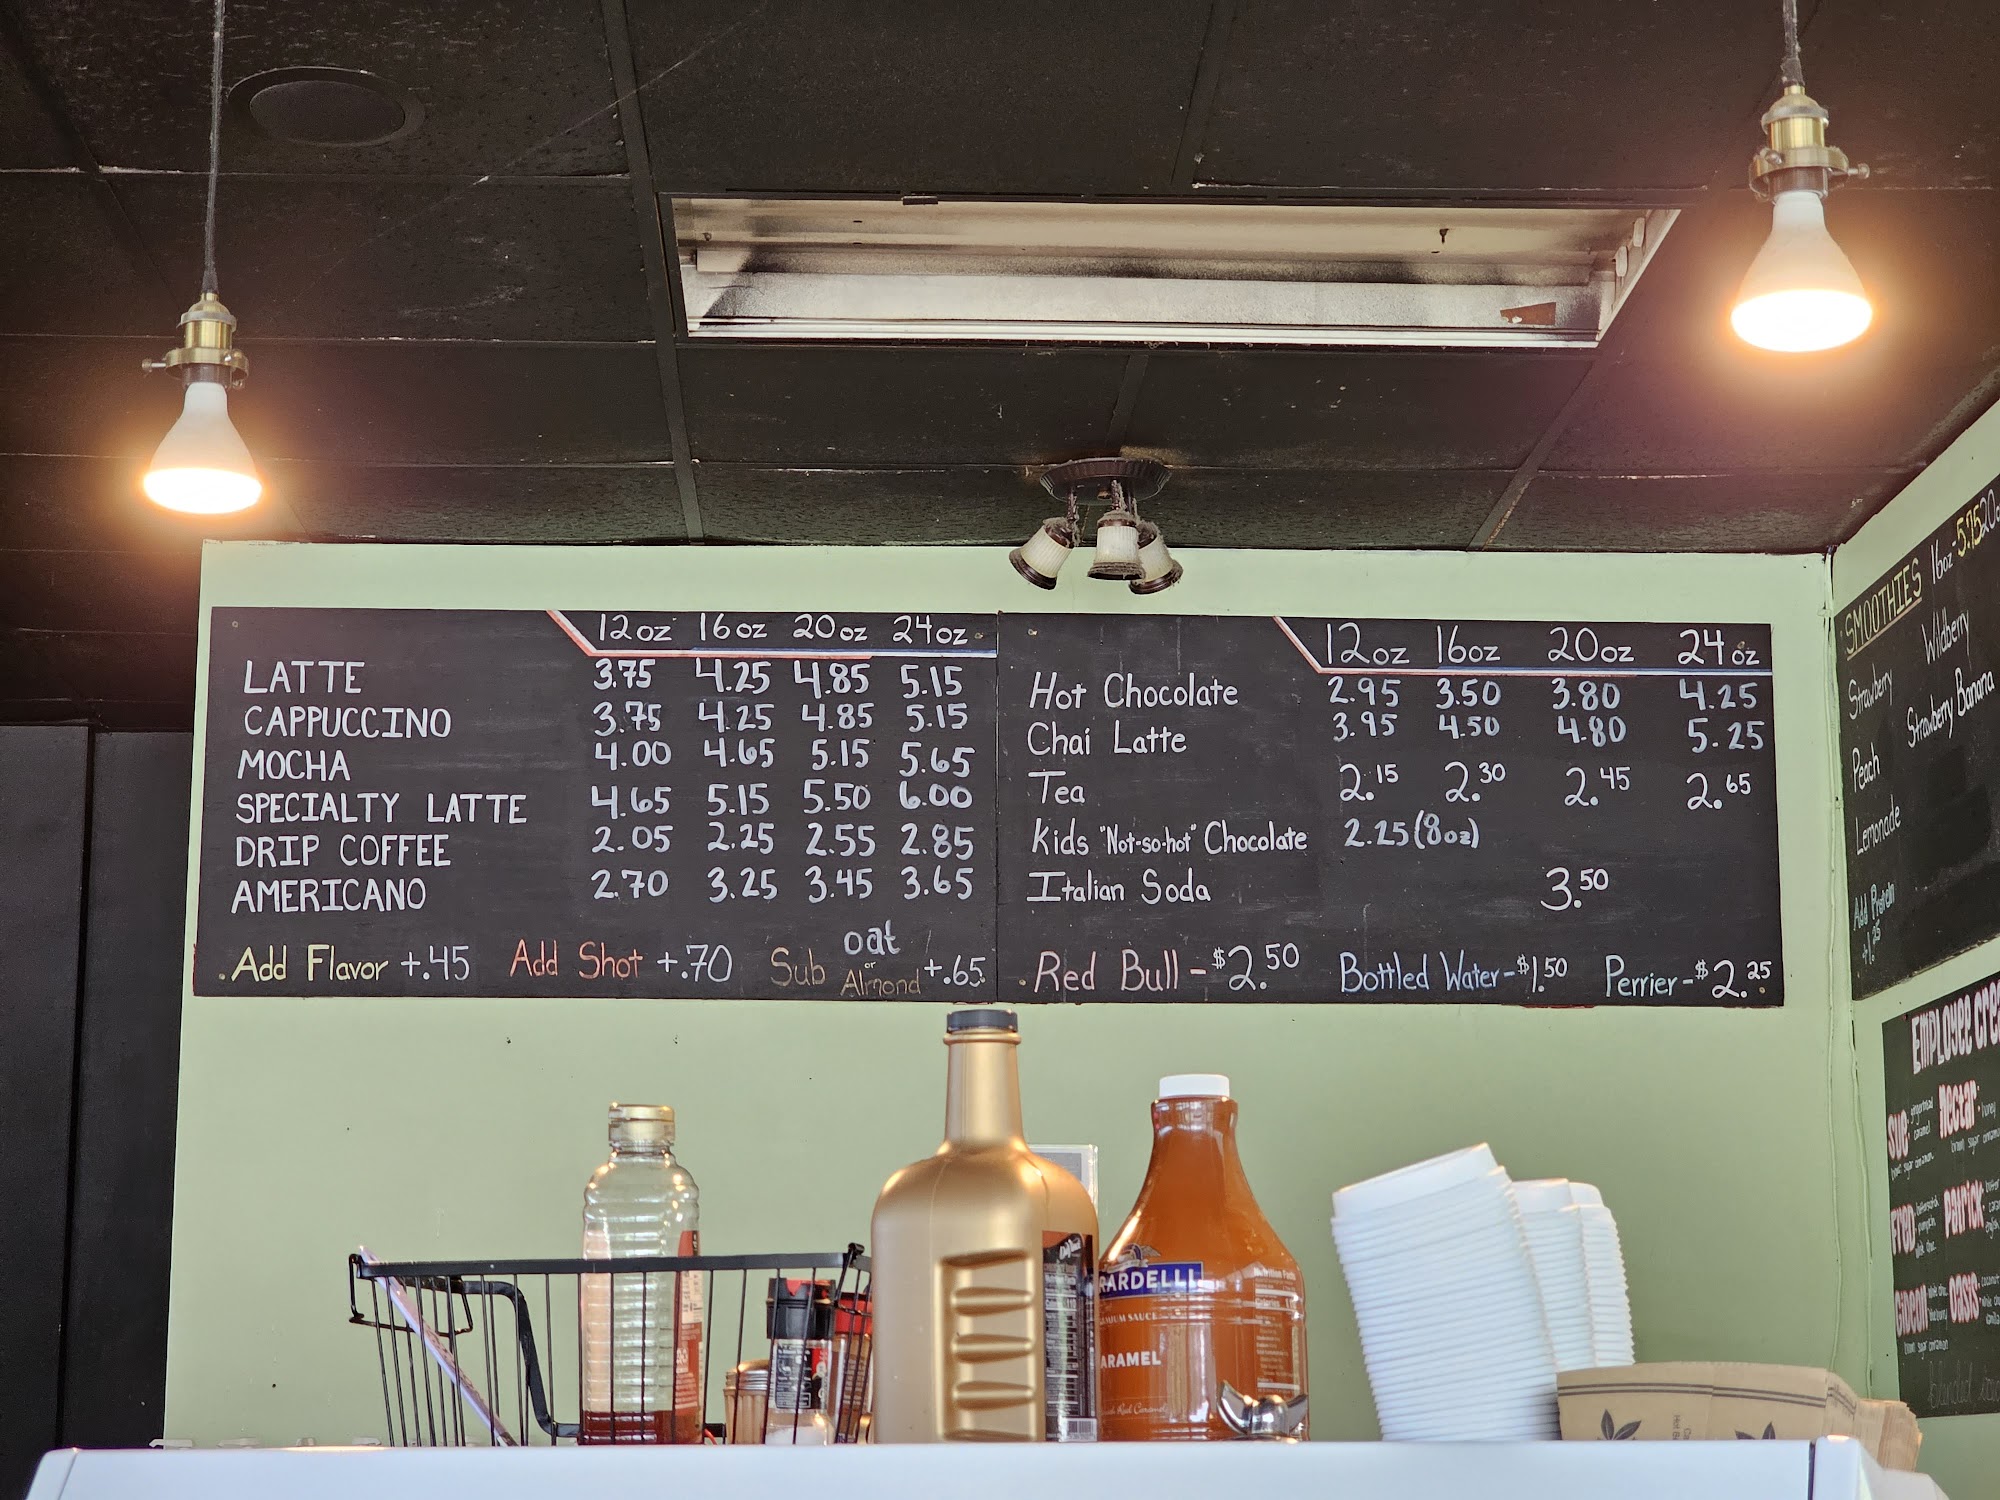 12oz 16oz 20oz 24oz
LATTE 3.75 4.25 4.85 5.15
CAPPUCCINO 3.75 4.25 4.85 5.15
MOCHA 4.00 4.65 5.15 5.65
SPECIALTY LATTE 4.65 5.15 5.50 6.00
DRIP COFFEE 2.05 2.25 2.55 2.85
AMERICANO 2.70 3.25 3.45 3.65
Add Flavor +.45 Add Shot +.70 Sub oat or Almond +.65
12oz 16oz 20oz 24oz
Hot Chocolate 2.95 3.50 3.80 4.25
Chai Latte 3.95 4.50 4.80 5.25
Tea 2.15 2.30 2.45 2.65
Kids "Not-so-hot" Chocolate 2.25 (8oz)
Italian Soda 3.50
Red Bull - $2.50 Bottled Water - $1.50 Perrier - $2.25
SMOOTHIES 16oz - 5.75 20o
Strawberry Wildberry
Peach Strawberry Banana
Lemonade
Add Protein
+1.25
EMPLOYEE CRE
SUE: gingerbread caramel brown sugar cinnamon
NECTAR: honey brown sugar cinnamon
FRED:
PATRICK:
GIDEON
OASIS: coconut
RARDELLI
ARAMEL
Nutrition Facts